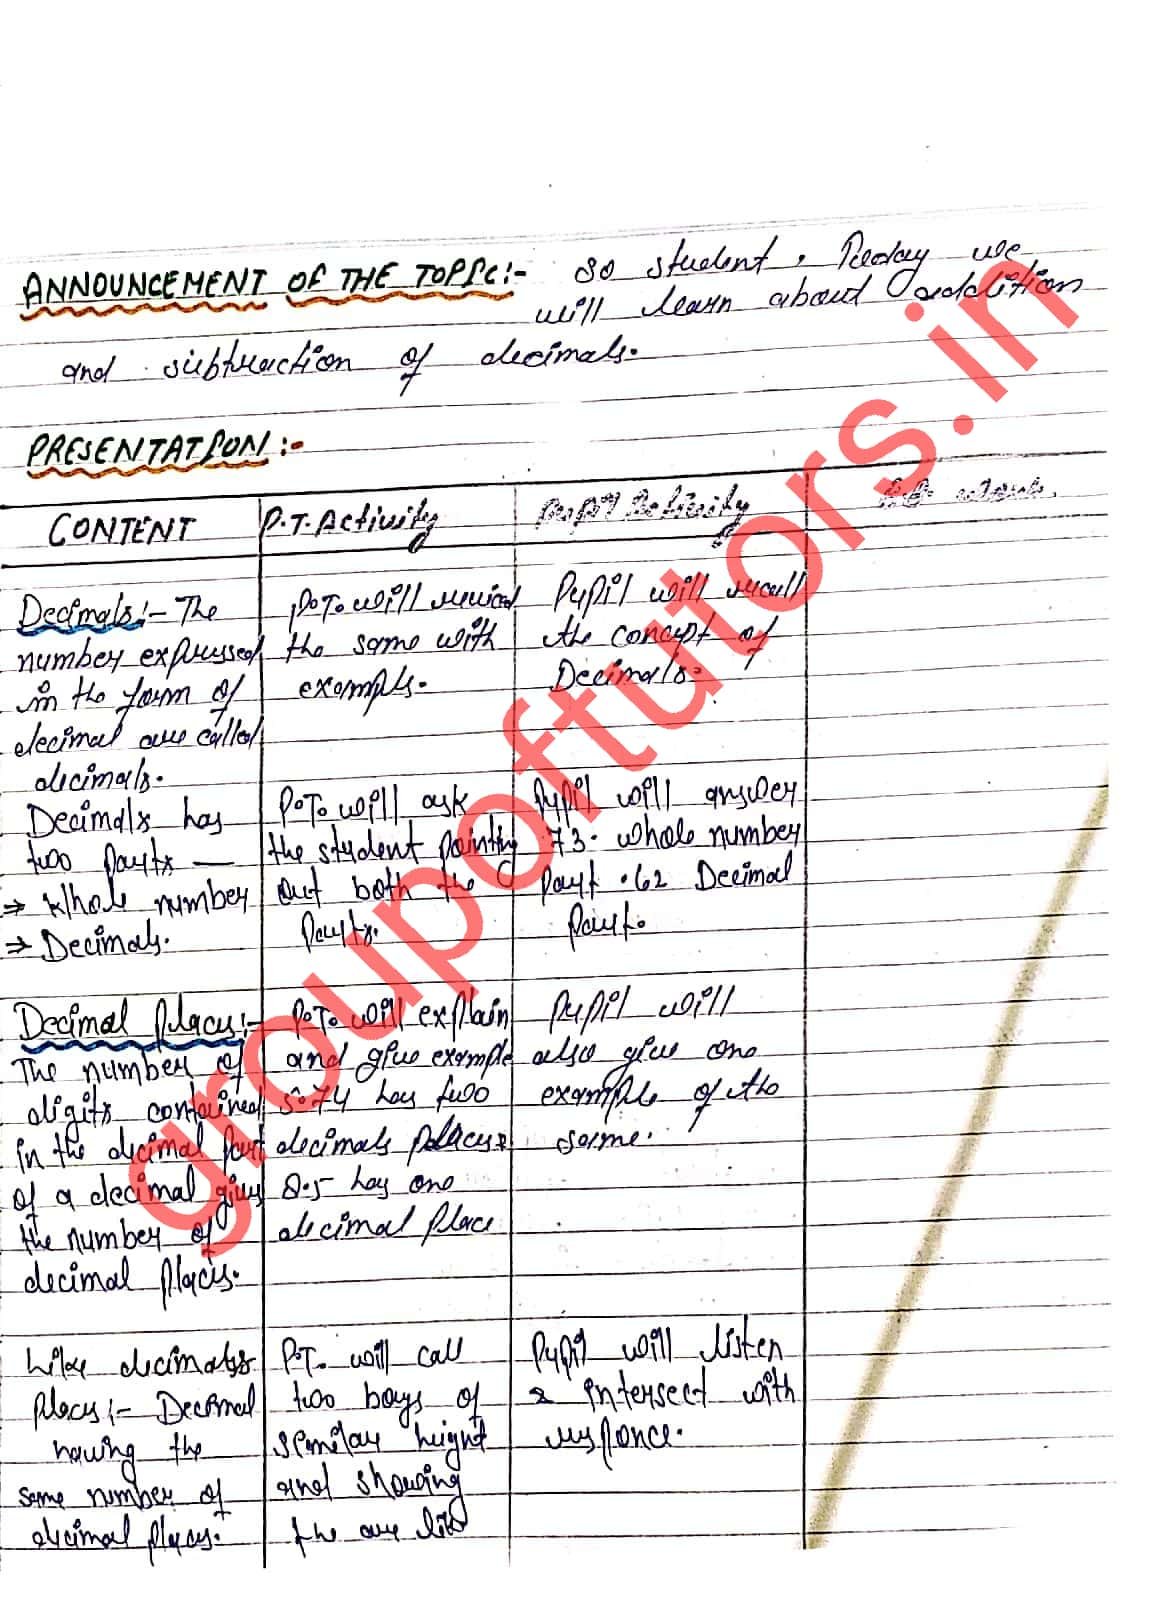 ANNOUNCEMENT OF THE TOPIC:- so student, Today we
will learn about addition
and subtraction of decimals.
PRESENTATION:-
CONTENT
P.T. Activity
Pupil Activity
B.B work.
Decimals:- The
number expressed
in the form of
decimal are called
decimals.
P.T. will
the same with
example.
Pupil will recall
the concept of
Decimals.
Decimals has
two parts —
⇒ Whole number
⇒ Decimals.
P.T. will ask
the student pointing
out both the
parts.
Pupil will answer
73. whole number
part .62 Decimal
part.
Decimal places:-
The number of
digits contained
in the decimal part
of a decimal gives
the number of
decimal places.
P.T. will explain
and give example
5.74 has two
decimals places &
2.5 has one
decimal place
Pupil will
also give one
example of the
same.
Like decimals
places:- Decimal
having the
same number of
decimal places.
P.T. will call
two boys of
similar height
and showing
the are like
Pupil will listen
& intersect with
responce.
groupoftutors.in